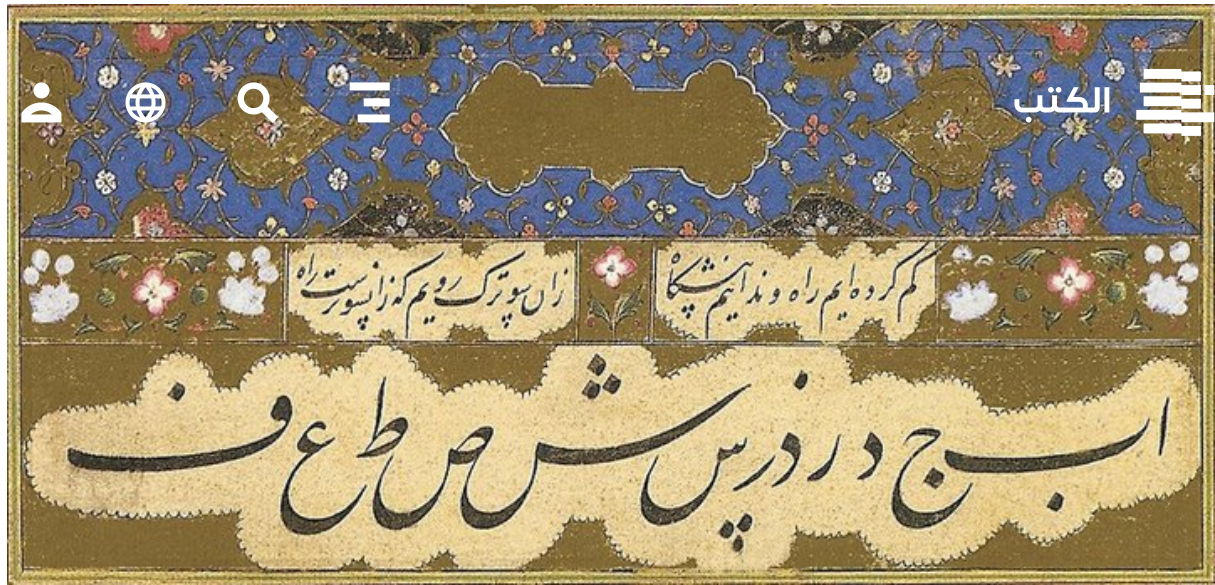 الكتب
کم کرده ایم راه و ندانیم پیشکاه
زان سوترک رویم که زانسوترست راه
ا ب ج د ر ذ ر س ش ص ط ع ف